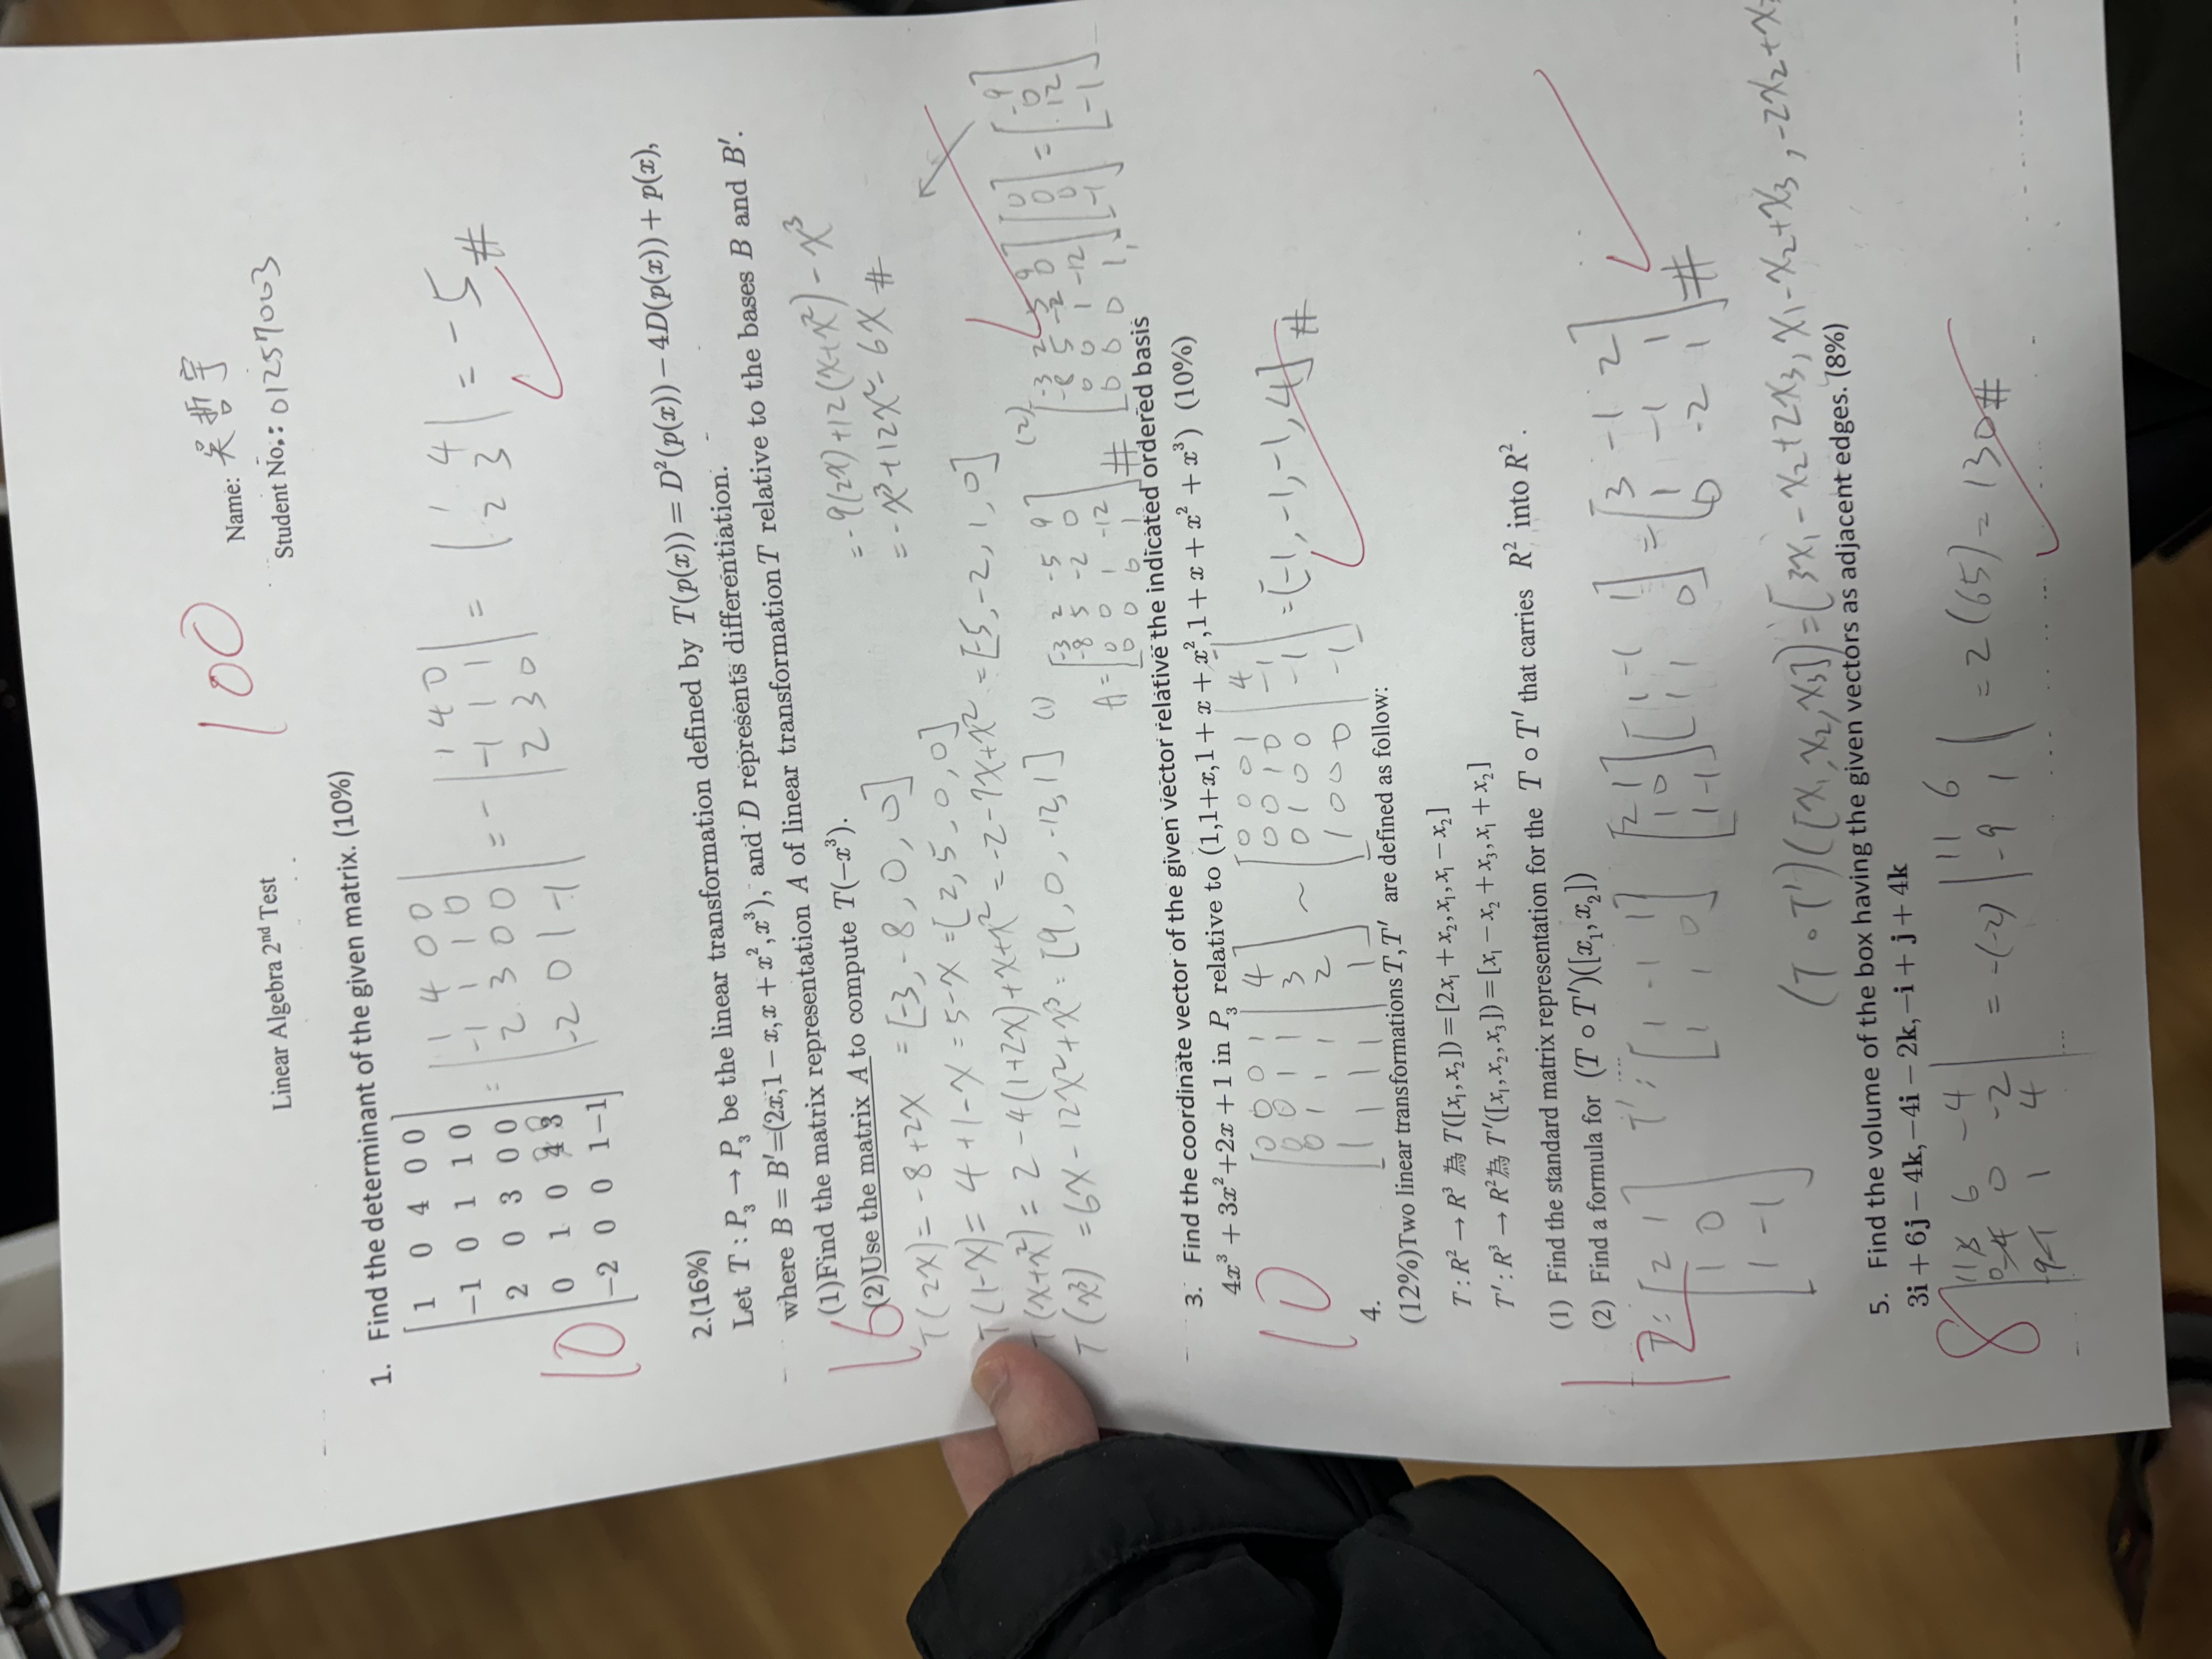 100
Name: 吳哲宇
Linear Algebra 2nd Test
Student No.: 01257003
1. Find the determinant of the given matrix. (10%)
10
[1 0 4 0 0
−1 0 1 1 0
2 0 3 0 0
0 1 0 4 3
−2 0 0 1 −1]
= |1 4 0 0
-1 1 1 0
2 3 0 0
-2 0 1 -1|
= - |1 4 0
-1 1 1
2 3 0|
= |1 4
2 3| = -5 #
2.(16%)
Let T : P₃ → P₃ be the linear transformation defined by T(p(x)) = D²(p(x)) − 4D(p(x)) + p(x),
where B = B′=(2x,1 − x,x + x²,x³), and D represents differentiation.
(1)Find the matrix representation A of linear transformation T relative to the bases B and B′.
(2)Use the matrix A to compute T(−x³).
16
= -9(2x)+12(x+x²)-x³
= -x³+12x²-6x #
T(2x)= -8+2x = [-3,-8,0,0]
T(1-x)= 4+1-x = 5-x = [2,5,0,0]
T(x+x²) = 2-4(1+2x)+x+x² = -2-7x+x² = [-5,-2,1,0]
T(x³) = 6x-12x²+x³ = [9,0,-12,1]
(1)
A = [-3 2 -5 9
-8 5 -2 0
0 0 1 -12
0 0 0 1] #
(2)
[-3 2 -5 9
-8 5 -2 0
0 0 1 -12
0 0 0 1] [0
0
0
-1] = [-9
0
12
-1]
3. Find the coordinate vector of the given vector relative the indicated ordered basis
4x³ + 3x²+2x + 1 in P₃ relative to (1,1+x,1 + x + x²,1 + x + x² + x³) (10%)
10
[0 0 0 1 | 4
0 0 1 1 | 3
0 1 1 1 | 2
1 1 1 1 | 1]
~ [0 0 0 1 | 4
0 0 1 0 | -1
0 1 0 0 | -1
1 0 0 0 | -1]
= [-1,-1,-1,4] #
4.
(12%)Two linear transformations T,T′ are defined as follow:
T : R² → R³ 為 T([x₁,x₂])=[2x₁ + x₂,x₁,x₁ − x₂]
T′ : R³ → R²為 T′([x₁,x₂,x₃])=[x₁ − x₂ + x₃,x₁ + x₂]
(1) Find the standard matrix representation for the T ∘ T′ that carries R² into R².
(2) Find a formula for (T ∘ T′)([x₁,x₂])
12
T: [2 1
1 0
1 -1]
T′: [1 -1 1
1 1 0]
[2 1
1 0
1 -1] [1 -1 1
1 1 0] = [3 -1 2
1 -1 1
0 -2 1] #
(T∘T′)([x₁,x₂,x₃])=[3x₁-x₂+2x₃, x₁-x₂+x₃, -2x₂+x
5. Find the volume of the box having the given vectors as adjacent edges. (8%)
3i + 6j − 4k,−4i − 2k,−i + j + 4k
8
|11 3 6 -4
0 -4 0 -2
-9 -1 1 4|
= -(-2) |11 6
-9 1| = 2(65) = 130 #